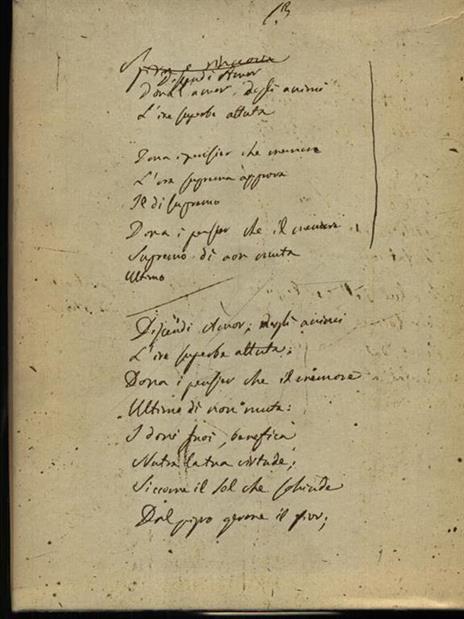 Discendi Amor
Dona l'amor, degli animi
L'ire superbe attuta

Dona i pensier che
L'ora suprema approva
Il dì supremo
Dona i pensier che il memore
Supremo dì non muta
Ultimo
Discendi Amor; degli animi
L'ire superbe attuta;
Dona i pensier che il memore
Ultimo dì non muta:
I doni tuoi, benefica
Nutra la tua virtude;
Siccome il sol che schiude
Dal pigro germe il fior;